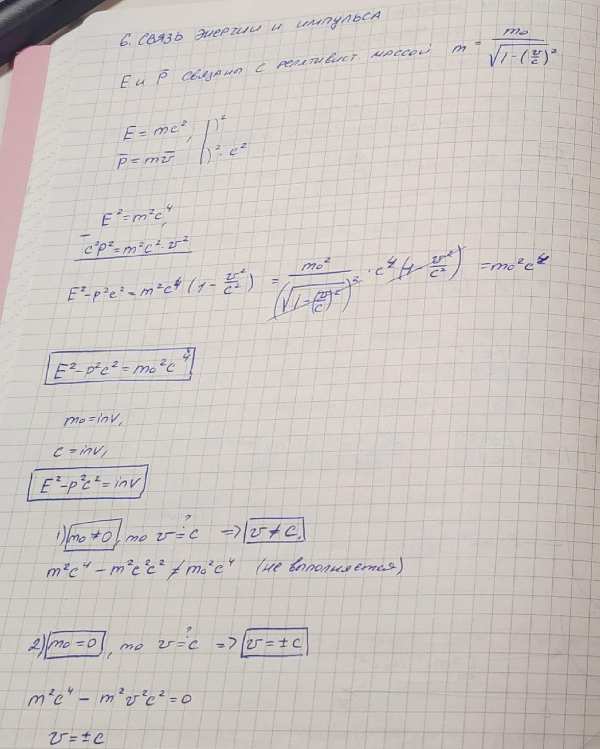 6. Связь энергии и импульса
E и P̄ связана с релятивист массой m = m₀/√(1-(v/c)²)
E = mc², | )²
P̄ = mv̄ | )² · c²
E² = m²c⁴,
− c²P² = m²c² · v²
E² - p²c² = m²c⁴ (1 - v²/c²) = m₀²/(√(1-(v/c)²))² · c⁴ (1 - v²/c²) = m₀²c⁴
E² - p²c² = m₀²c⁴
m₀ = inv,
c = inv,
E² - p²c² = inv
1) m₀ ≠ 0, то v ≟ c => v ≠ c.
m²c⁴ - m²c²c² ≠ m₀²c⁴ (не выполняется)
2) m₀ = 0, то v ≟ c => v = ±c
m²c⁴ - m²v²c² = 0
v = ±c